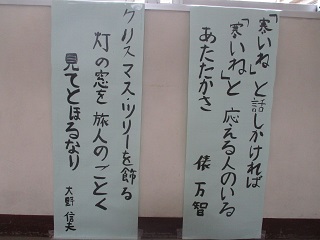 「寒いね」と話しかければ
「寒いね」と応える人のいる
あたたかさ
俵万智
クリスマス・ツリーを飾る
灯の窓を旅人のごとく
見てとほるなり
大野信夫